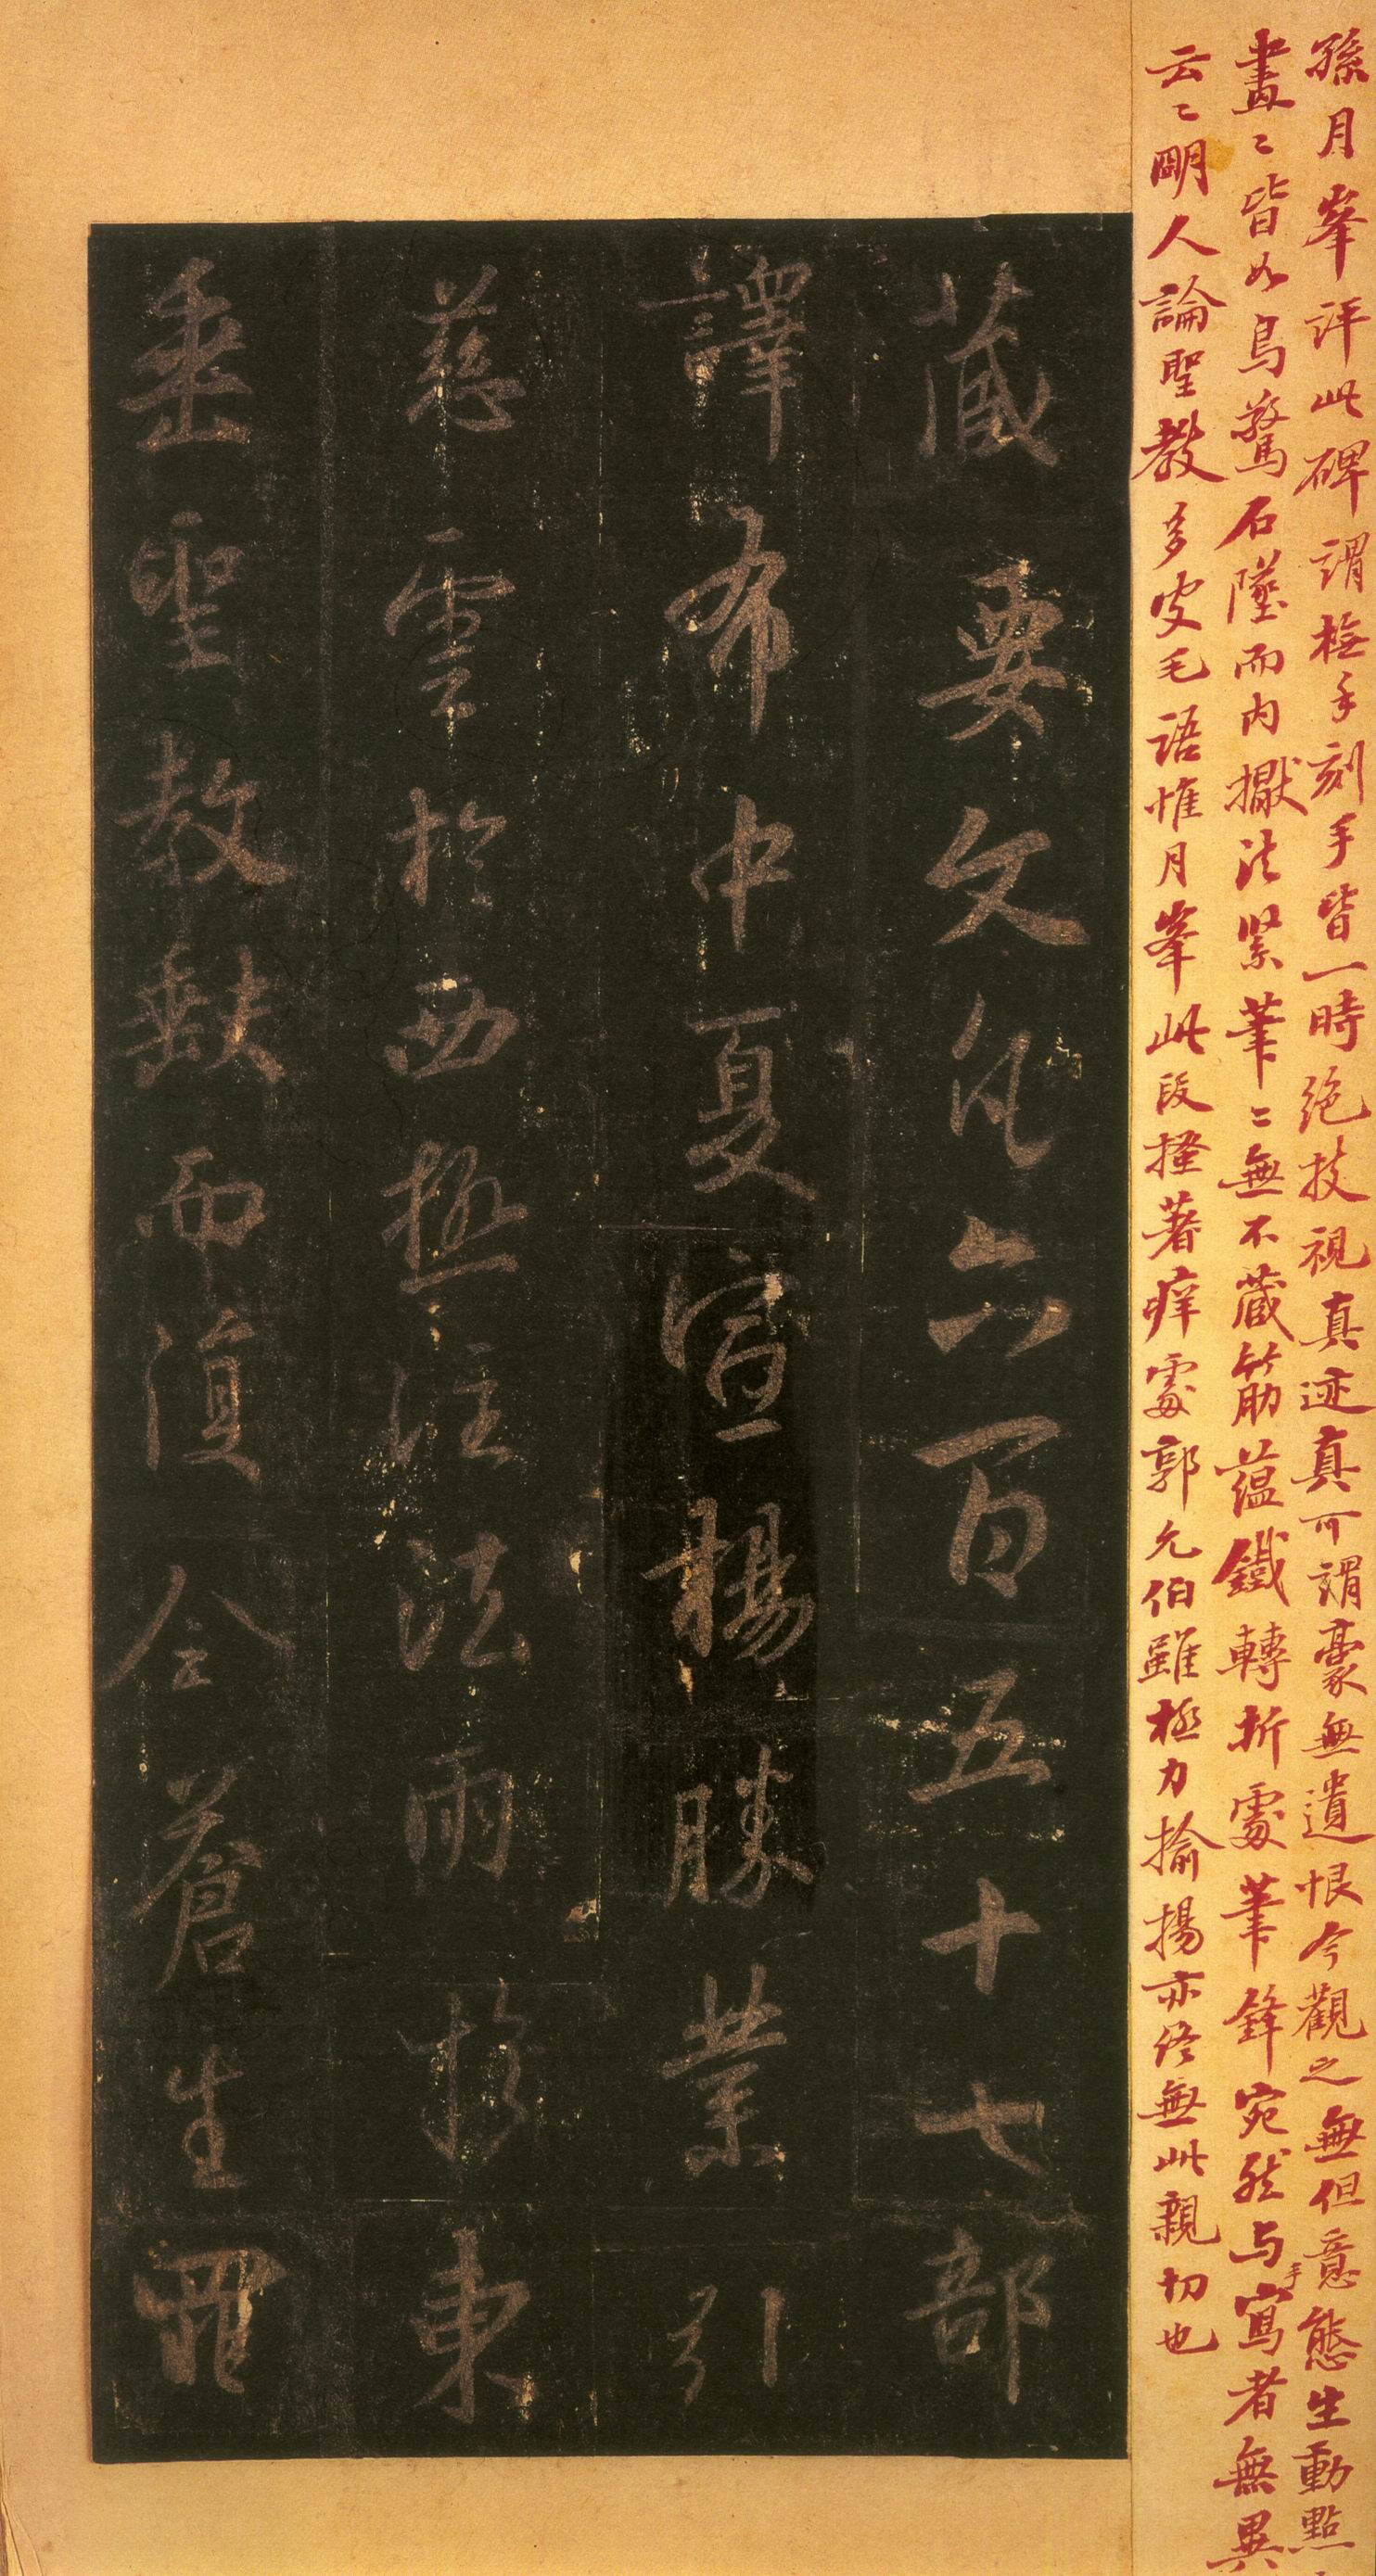 孫月峯評此碑謂橅手刻手皆一時絶技視真迹真可謂豪無遺恨今觀之無但意態生動點
畫〻皆如鳥驚石墜而内擫法緊筆〻無不藏筋蘊鐵轉折處筆鋒宛然与手寫者無異
云〻明人論聖教多皮毛語惟月峯此段搔著痒處郭允伯雖極力揄揚亦終無此親切也
藏要文凡六百五十七部
譯布中夏宣揚勝業引
慈雲於西極注法雨於東
垂聖教缺而復全蒼生罪